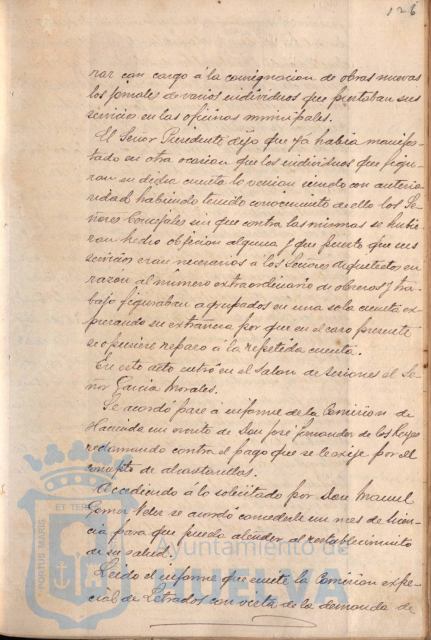 126
rar con cargo á la consignacion de obras nuevas
los jornales de varios individuos que prestaban sus
servicios en las oficinas municipales.
El Señor Presidente dijo que ya habia manifes-
tado en otra ocasion que los individuos que figu-
ran en dicha cuenta lo venian siendo con anterio-
ridad, habiendo tenido conocimiento de ello los Se-
ñores Concejales sin que contra las mismas se hubie-
ran hecho objecion alguna y que puesto que sus
servicios eran necesarios á los Señores Arquitectos en
razón al número extraordinario de obreros y tra-
bajo figuraban agrupados en una sola cuenta ex-
presando su extrañeza por que en el caso presente
se opusiere reparo á la repetida cuenta.
En este acto entró en el Salon de Sesiones el Se-
ñor Garcia Morales.
Se acordó pase á informe de la Comision de
Hacienda un escrito de Don José Fernandez de los Reyes
reclamando contra el pago que se le exije por el
concepto de alcantarillas.
Accediendo á lo solicitado por Don Manuel
Gomez Velez se acordó concederle un mes de licen-
cia para que pueda atender al restablecimiento
de su salud.
Leido el informe que emite la Comision espe-
cial de Letrados con vista de la demanda de
PORTUS MARIS ET TERRE
Ayuntamiento de
HUELVA